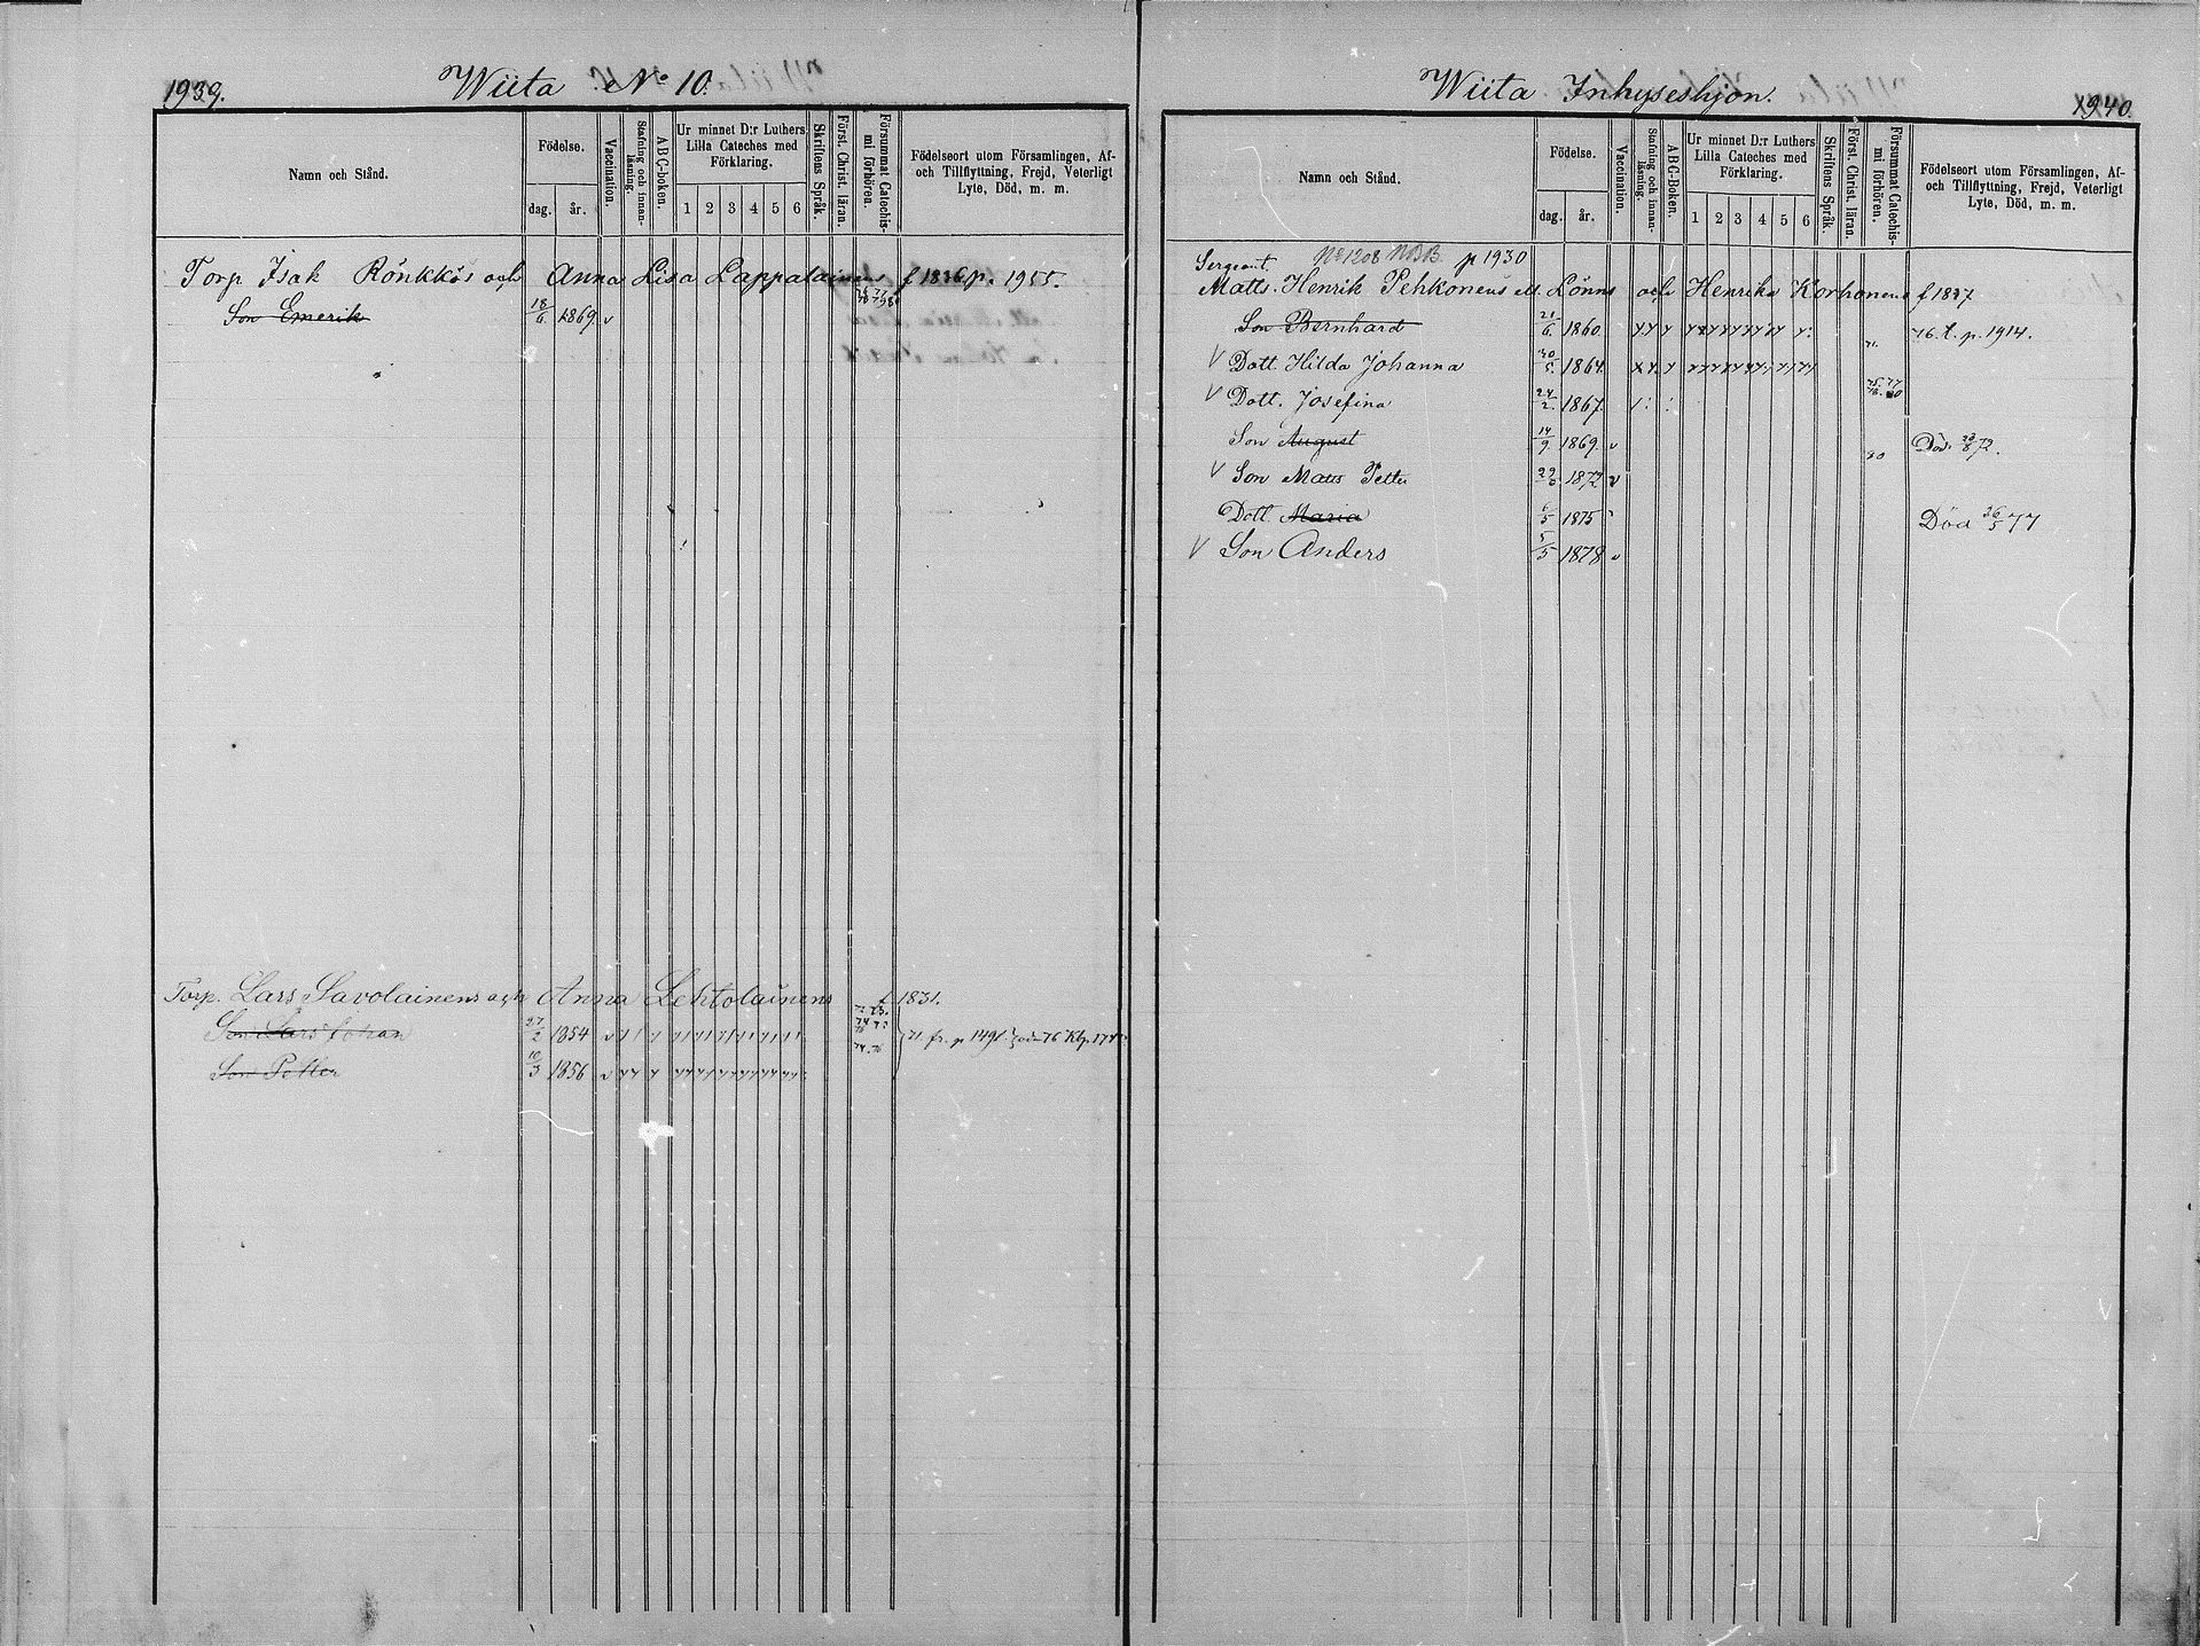 1939.
Wiita No 10.
Namn och Stånd.
Födelse.
dag. år.
Vaccination.
Stafning och innan-läsning.
ABC-boken.
Ur minnet D:r Luthers Lilla Cateches med Förklaring.
1 2 3 4 5 6
Skriftens Språk.
Först. Christ. läran.
Försummat Catechis-mi förhören.
Födelseort utom Församlingen, Af- och Tillflyttning, Frejd, Veterligt Lyte, Död, m. m.
Torp Isak Rönkkös och Anna Lisa Lappalainens f 1836 p. 1955.
Son Emerik 18/6 1869. v
Torp. Lars Savolainens och Anna Lehtolainens f. 1831.
Son Lars Johan 27/2 1854 v
Son Petter 10/3 1856 v
71 fr. p 1491
Wiita Inhyseshjon.
1940.
Namn och Stånd.
Födelse.
dag. år.
Vaccination.
Stafning och innan-läsning.
ABC-Boken.
Ur minnet D:r Luthers Lilla Cateches med Förklaring.
1 2 3 4 5 6
Skriftens Språk.
Först. Christ. läran.
Försummat Catechis-mi förhören.
Födelseort utom Församlingen, Af- och Tillflyttning, Frejd, Veterligt Lyte, Död, m. m.
Sergeant. No 1208 NBB p 1930
Matts. Henrik Pehkonens Lönns och Henrika Korhonens f 1837
Son Bernhard 21/6. 1860. 71. 76. t. p. 1914.
V Dott. Hilda Johanna 30/5. 1864.
V Dott. Josefina 24/2. 1867. 75. 77 78. 80
Son August 14/9. 1869. v Död. 23/8 72.
V Son Matts Petter 1872 v 80
Dott. Maria 6/5 1875 Död 26/5 77
V Son Anders 5/5 1878 v